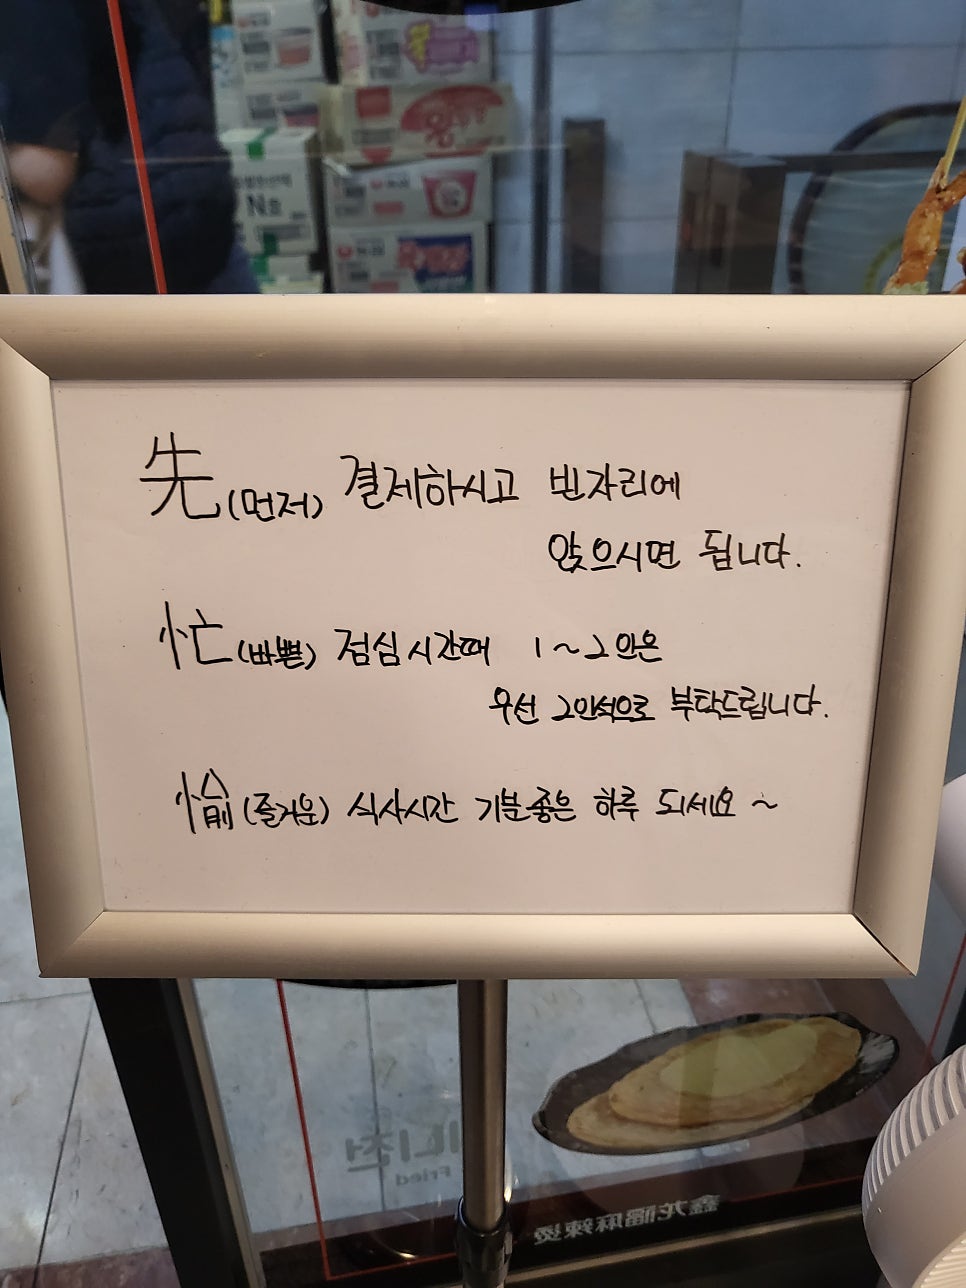 왕
N
先(먼저) 결제하시고 빈자리에
앉으시면 됩니다.
忙(바쁜) 점심시간때 1~2인은
우선 2인석으로 부탁드립니다.
愉(즐거운) 식사시간 기분좋은 하루 되세요~
니전
Fried
鑫龙福麻辣烫